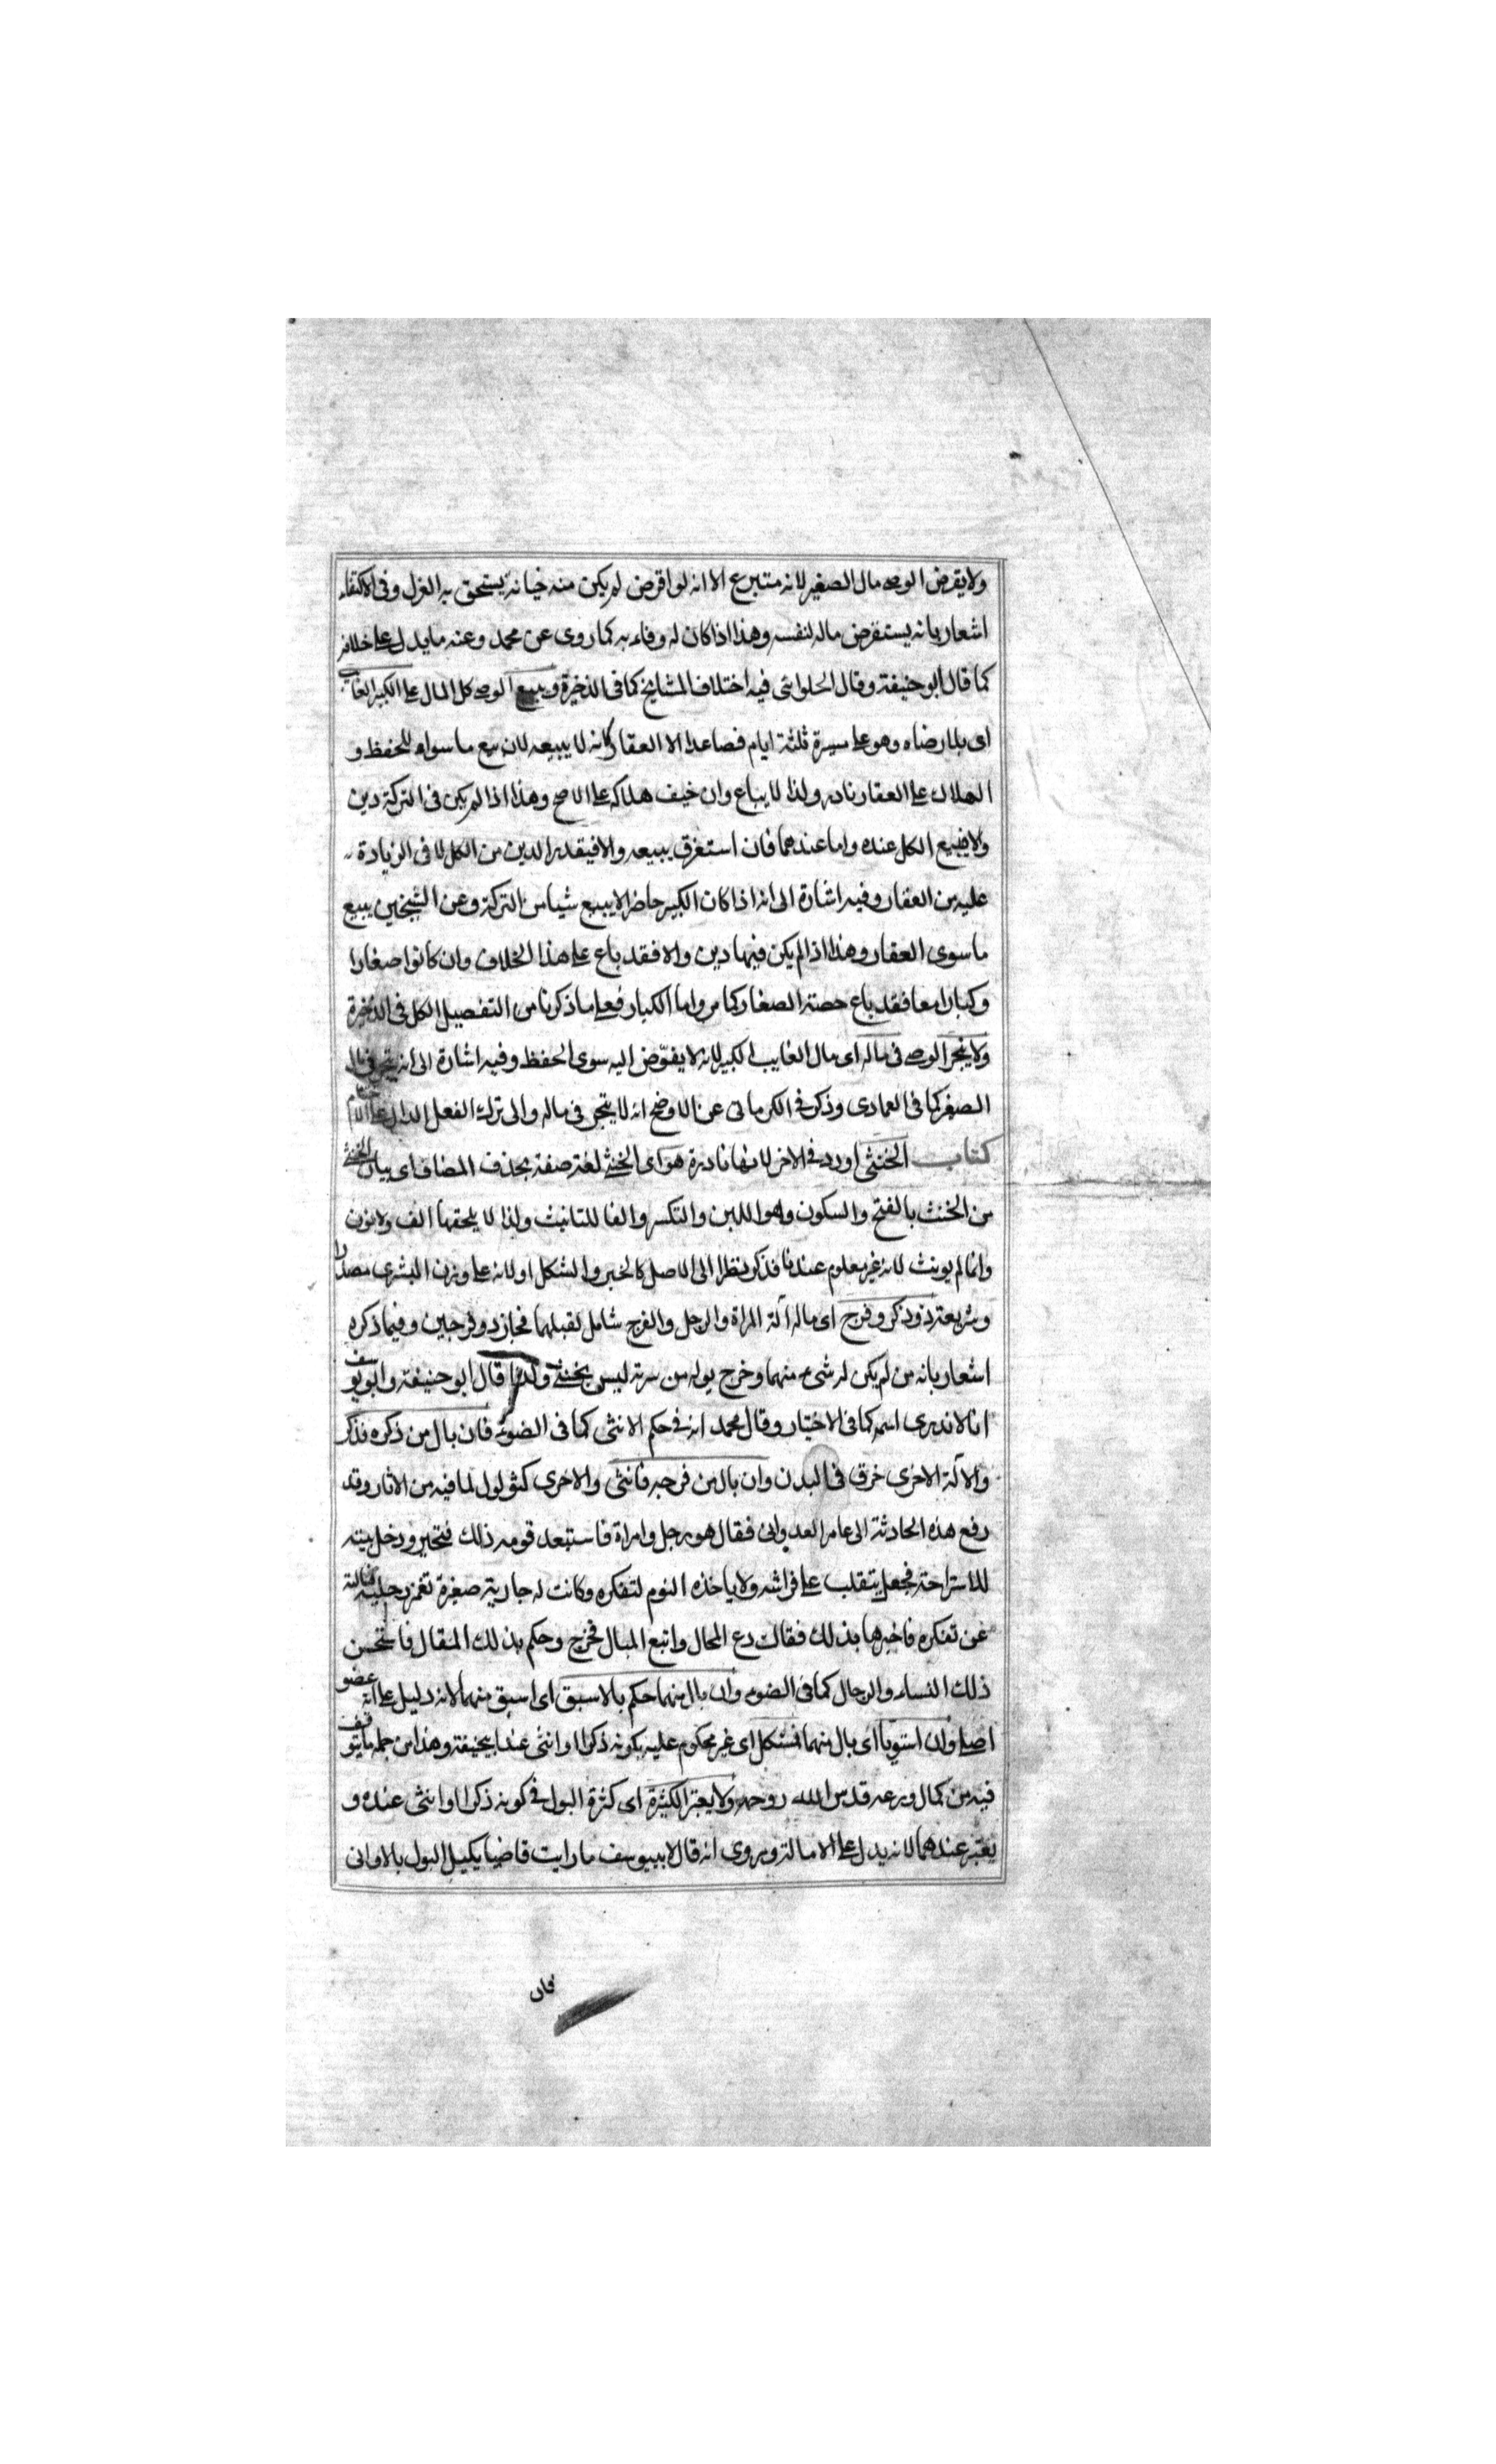 ولا يقرض الوصى مال الصغير لانه متبرع الا انه لو اقرض لم يكن منه خيانة يستحق به العزل وفى الاكتفاء
اشعار بانه يستقرض ماله لنفسه وهذا اذا كان له وفاء به كما روى عن محمد وعنه ما يدل على خلافه
كما قال ابو حنيفة وقال الحلوانى فيه اختلاف المشايخ كما فى الذخيرة ويبيع الوصى كل المال على الكبير الغايب
اى بلا رضاه وهو على مسيرة ثلثة ايام فصاعدا الا العقار فانه لا يبيعه لان بيع ما سواه للحفظ و
الهلاك على العقار نادر ولذا لا يباع وان خيف هلاكه على الاصح وهذا اذا لم يكن فى التركة دين
والا فيبيع الكل عنده واما عندهما فان استغرق يبيعه والا فبقدر الدين من الكل لا فى الزيادة
عليه من العقار وفيه اشارة الى انه اذا كان الكبير حاضرا لا يبيع شيا من التركة وعن الشيخين يبيع
ما سوى العقار وهذا اذا لم يكن فيها دين والا فقد باع على هذا الخلاف وان كانوا صغارا
وكبارا معا فقد باع حصة الصغار كما مر واما الكبار فعلى ما ذكرنا من التفصيل الكل فى الذخيرة
ولا يتجر الوصى فى ماله اى مال الغايب الكبير لانه لا يفوّض اليه سوى الحفظ وفيه اشارة الى انه يتجر فى مال
الصغير كما فى العمادى وذكر فى الكرمانى عن الاوضح انه لا يتجر فى ماله والى ترك الفعل الدال على
كتاب الخنثى اورد فى الاخر لانها نادرة هو اى الخنثى لغة صفة بحذف المضاف اى بيان الخنثى
من الخنث بالفتح والسكون وهو اللين والتكسر والفا للتانيث ولذا لا يلحقها الف ولا نون
وانما لم يونث لانه غير معلوم عندنا فذكر نظرا الى الاصل كالخبر والشكل او لانه على وزن البشرى مصدرا
وشريعة ذو ذكر وفرج اى ماله آلة المراة والرجل والفرج شامل لقبلهما فجاز ذو فرجين وفيما ذكره
اشعار بانه من لم يكن له شىء منهما وخرج بوله من سرته ليس بخنثى ولذا قال ابو حنيفة وابو يوسف
انا لا ندرى اسمه كما فى الاختيار وقال محمد انه فى حكم الانثى كما فى الضوء فان بال من ذكره فذكر
والآلة الاخرى خرق فى البدن وان بال من فرجه فانثى والاخرى كثولول لما فيه من الاثار وقد
رفع هذه الحادثة الى عامر العدوانى فقال هو رجل وامراة فاستبعد قومه ذلك فتحير ودخل بيته
للاستراحة فجعل يتقلب على فراشه ولا ياخذه النوم لتفكره وكانت له جارية صغيرة تغمز رجليه فسالته
عن تفكره فاخبرها بذلك فقالت دع المحال واتبع المبال فخرج وحكم بذلك المقال فاستحسن
ذلك النساء والرجال كما فى الضوء وان بال منهما حكم بالاسبق اى اسبق منهما لانه دليل على انه عضو
اصلى وان استويا اى بال منهما فمشكل اى غير محكوم عليه بكونه ذكرا او انثى عند ابيحنيفة وهذا من جملة ما يتوقف
فيه من كمال ورعه قدس الله روحه ولا يعتبر الكثرة اى كثرة البول فى كونه ذكرا او انثى عنده و
يعتبر عندهما لانه يدل على الاصالة ويروى انه قال لابييوسف ما رايت قاضيا يكيل البول بالاوانى
فان